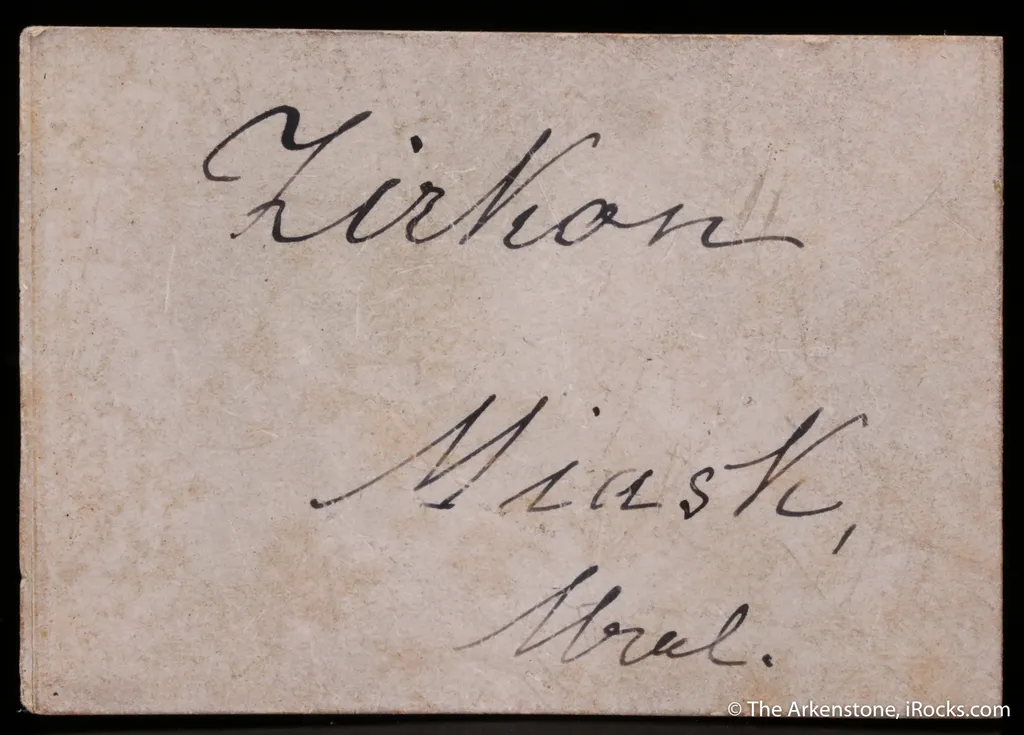 Zirkon
Miask,
Ural.
© The Arkenstone, iRocks.com